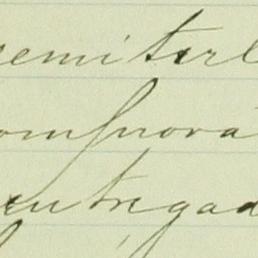 remiterl
comprová
entregad